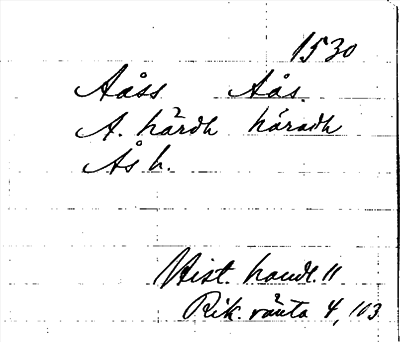 1530
Aåss Aås.
A. hårdh håradh
Ås h.
Hist. handl. 11
Rik. ränta 4, 103